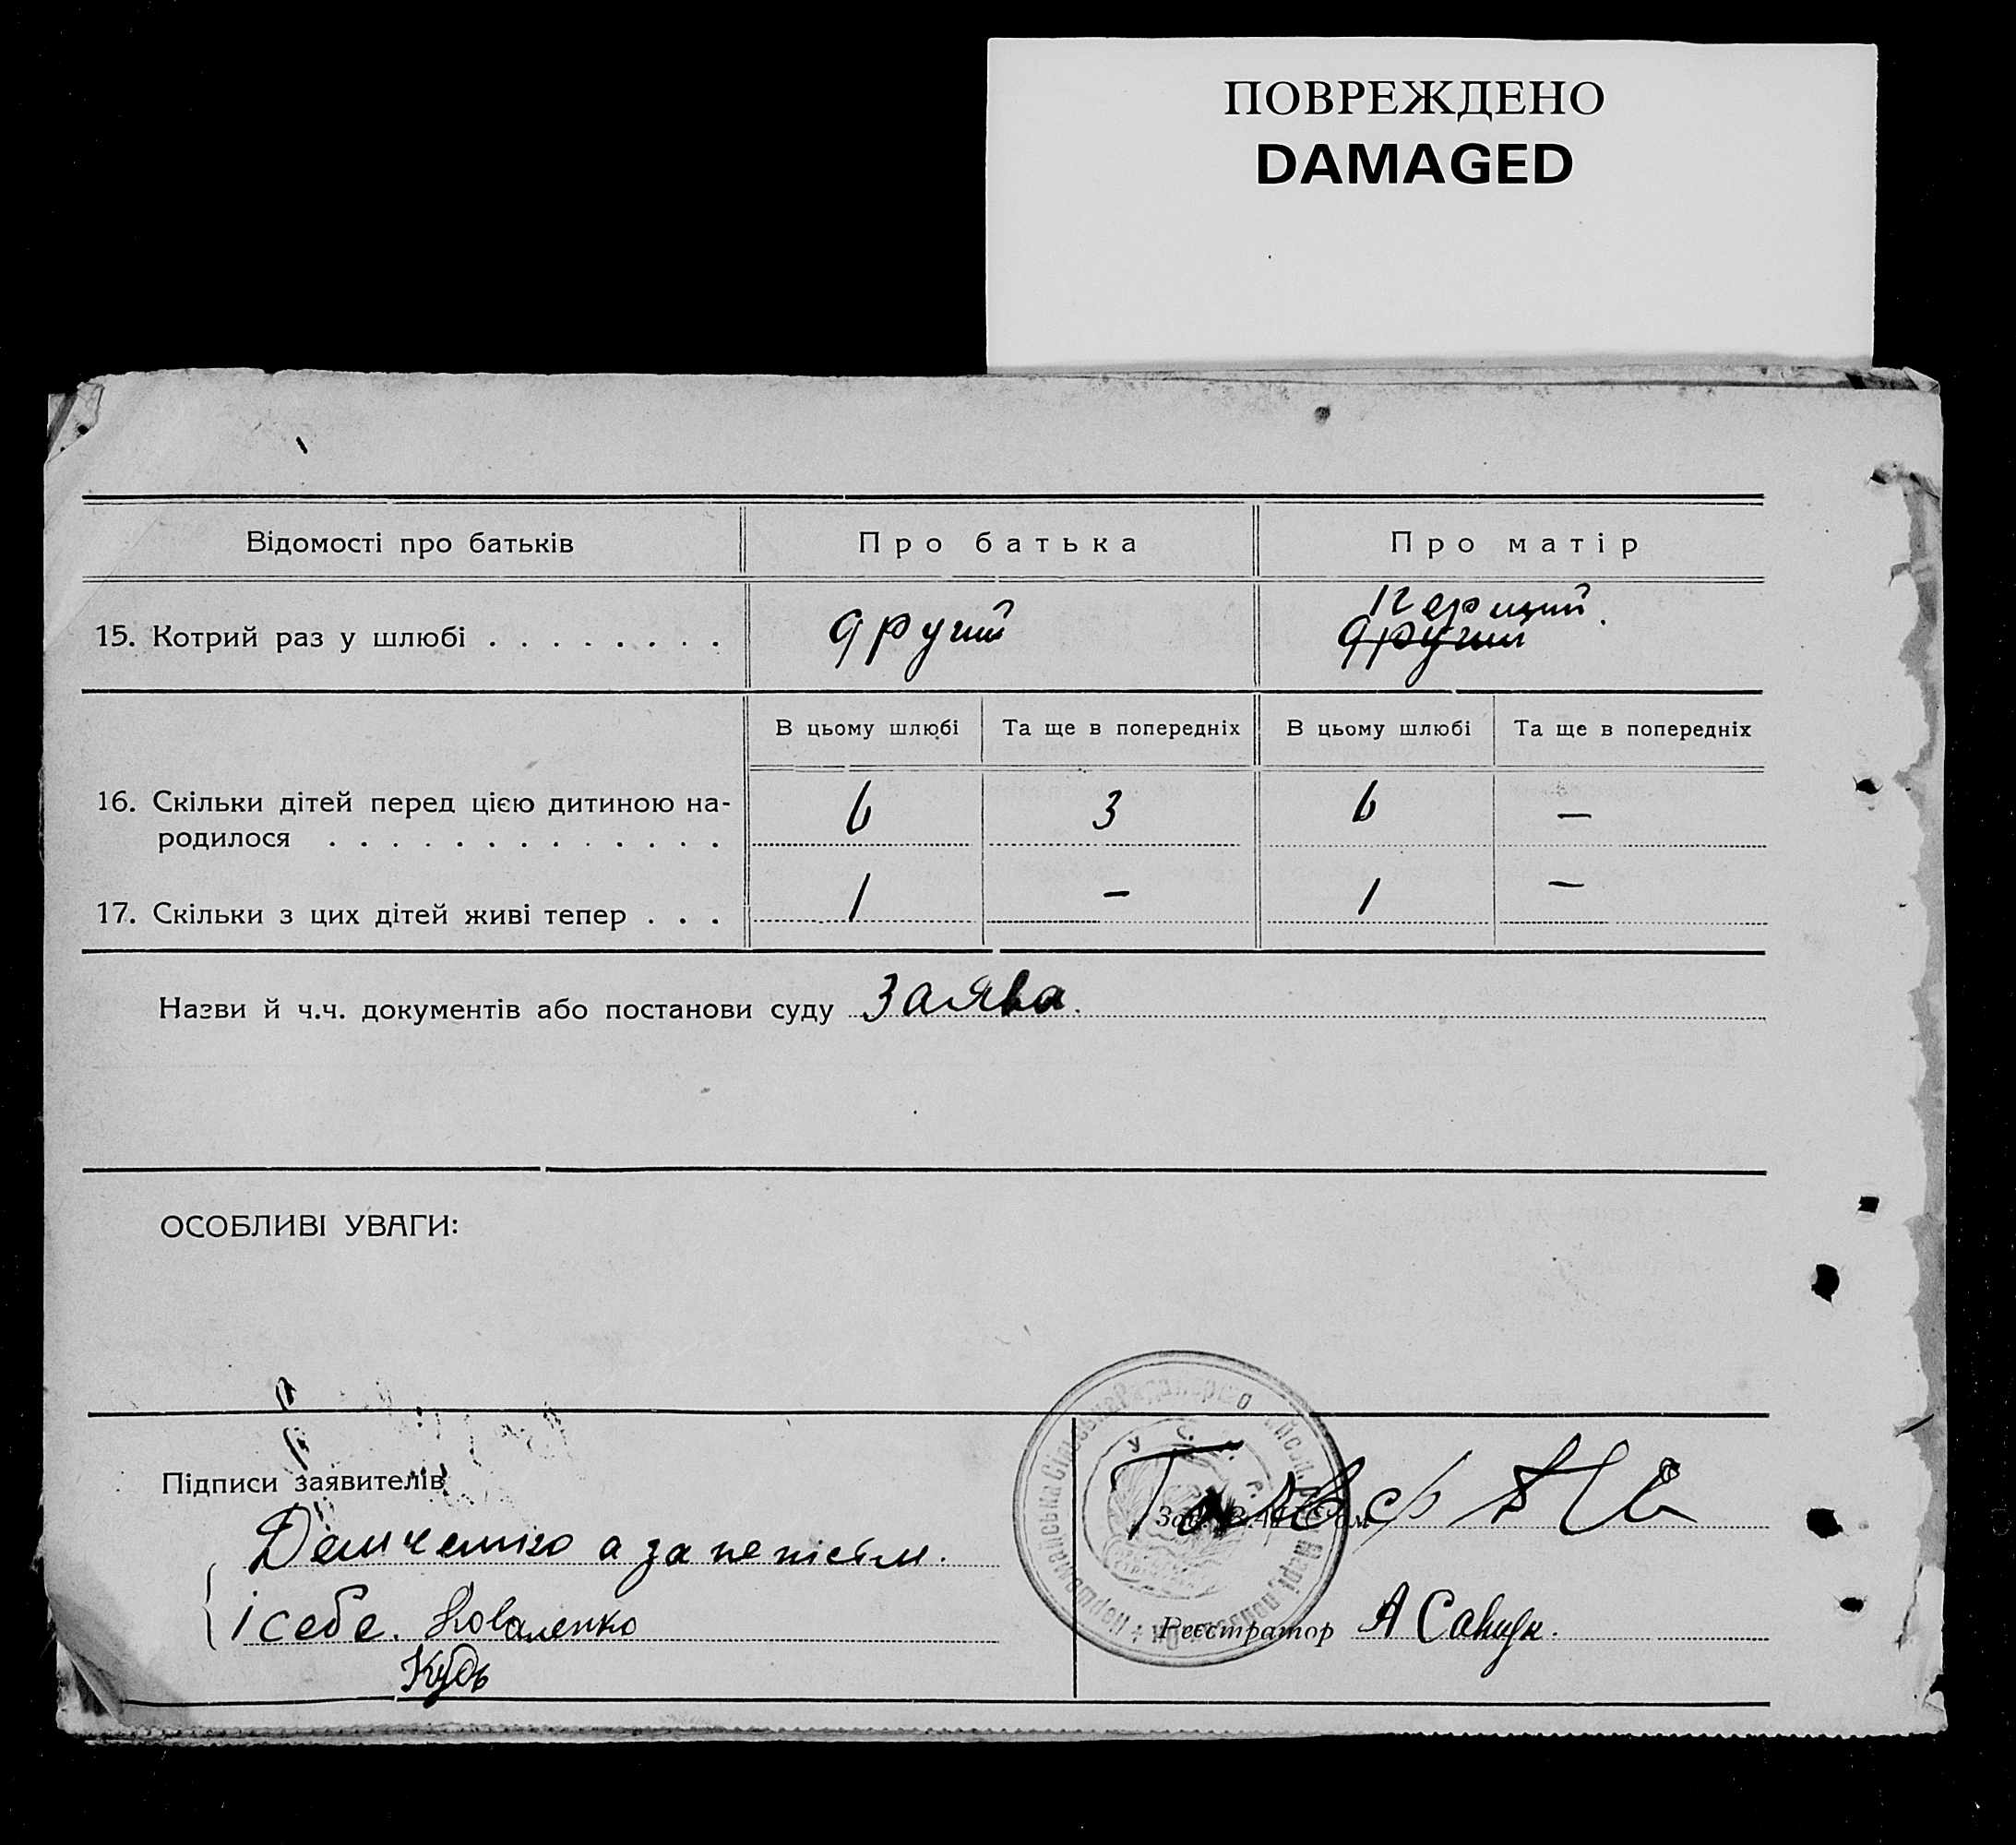 ПОВРЕЖДЕНО
DAMAGED
Відомості про батьків
Про батька
Про матір
15. Котрий раз у шлюбі . . . . . . . .
другий
перший.
другий
В цьому шлюбі
Та ще в попередніх
В цьому шлюбі
Та ще в попередніх
16. Скільки дітей перед цією дитиною на-
родилося . . . . . . . . . . . . .
6
3
6
—
17. Скільки з цих дітей живі тепер . . .
1
—
1
—
Назви й ч.ч. документів або постанови суду Заява.
ОСОБЛИВІ УВАГИ:
Підписи заявителів
Демченко а за
і себе. Коваленко
Кудь
У. С. Р. Р.
Реєстратор А